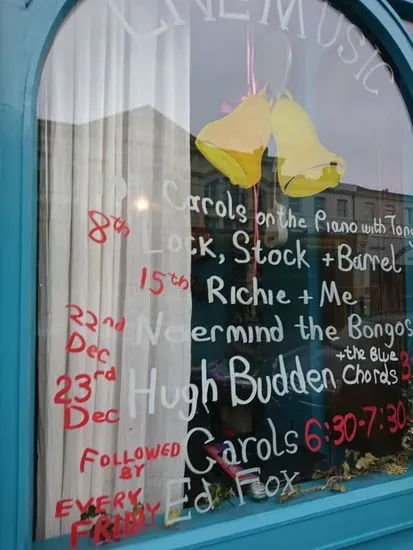 LIVE MUSIC
Carols on the Piano with Tony
8th Lock, Stock + Barrel
15th Richie + Me
22nd Dec Nevermind the Bongos
23rd Dec Hugh Budden + the Blue Chords
FOLLOWED BY Carols 6:30-7:30
EVERY FRIDAY Ed Fox